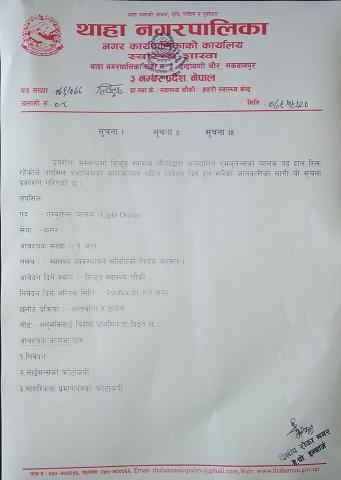 थाहा नगरपालिका
नगर कार्यपालिकाको कार्यालय
स्वास्थ्य शाखा
थाहा नगरपालिका वडा नं. इन्द्रायणी चौर, मकवानपुर
३ नम्बर प्रदेश, नेपाल
पत्र संख्या : ०७६/०७७ प्रा.स्वा.के. / स्वास्थ्य चौकी / शहरी स्वास्थ्य केन्द्र
चलानी नं. ०८
मिति :
सूचना । सूचना ॥ सूचना ॥।
उपरोक्त सम्बन्धमा टिष्टुङ स्वास्थ्य चौकीद्वारा सञ्चालित एम्बुलेन्सको चालक पद हाल रिक्त
रहेकोले तपसिल बमोजिमका कागजातहरु सहित निवेदन दिनु हुन सबैको जानकारीको लागी यो सूचना
प्रकाशन गरिएको छ ।
तपसिल
पद :- एम्बुलेन्स चालक (Light Driver)
सेवा :- करार
आवश्यक संख्या :- १ जना
तलब :- स्वास्थ्य व्यवस्थापन समितिको निर्णय अनुसार ।
आवेदन दिने स्थान :- टिष्टुङ स्वास्थ्य चौकी
निवेदन दिने अन्तिम मिति :- गते सम्म
छनौट प्रक्रिया :- अन्तर्वार्ता र ट्रायल
नोट:- अनुभवीलाई विशेष प्राथमिकता दिईने छ ।
आवश्यक कागजातहरु
१.निवेदन
२.लाईसन्सको फोटोकपी
३.नागरिकता प्रमाणपत्रको फोटोकपी
दिलीप रोका मगर
Email: thahamunicipality@gmail.com, Web: www.thahamun.gov.np